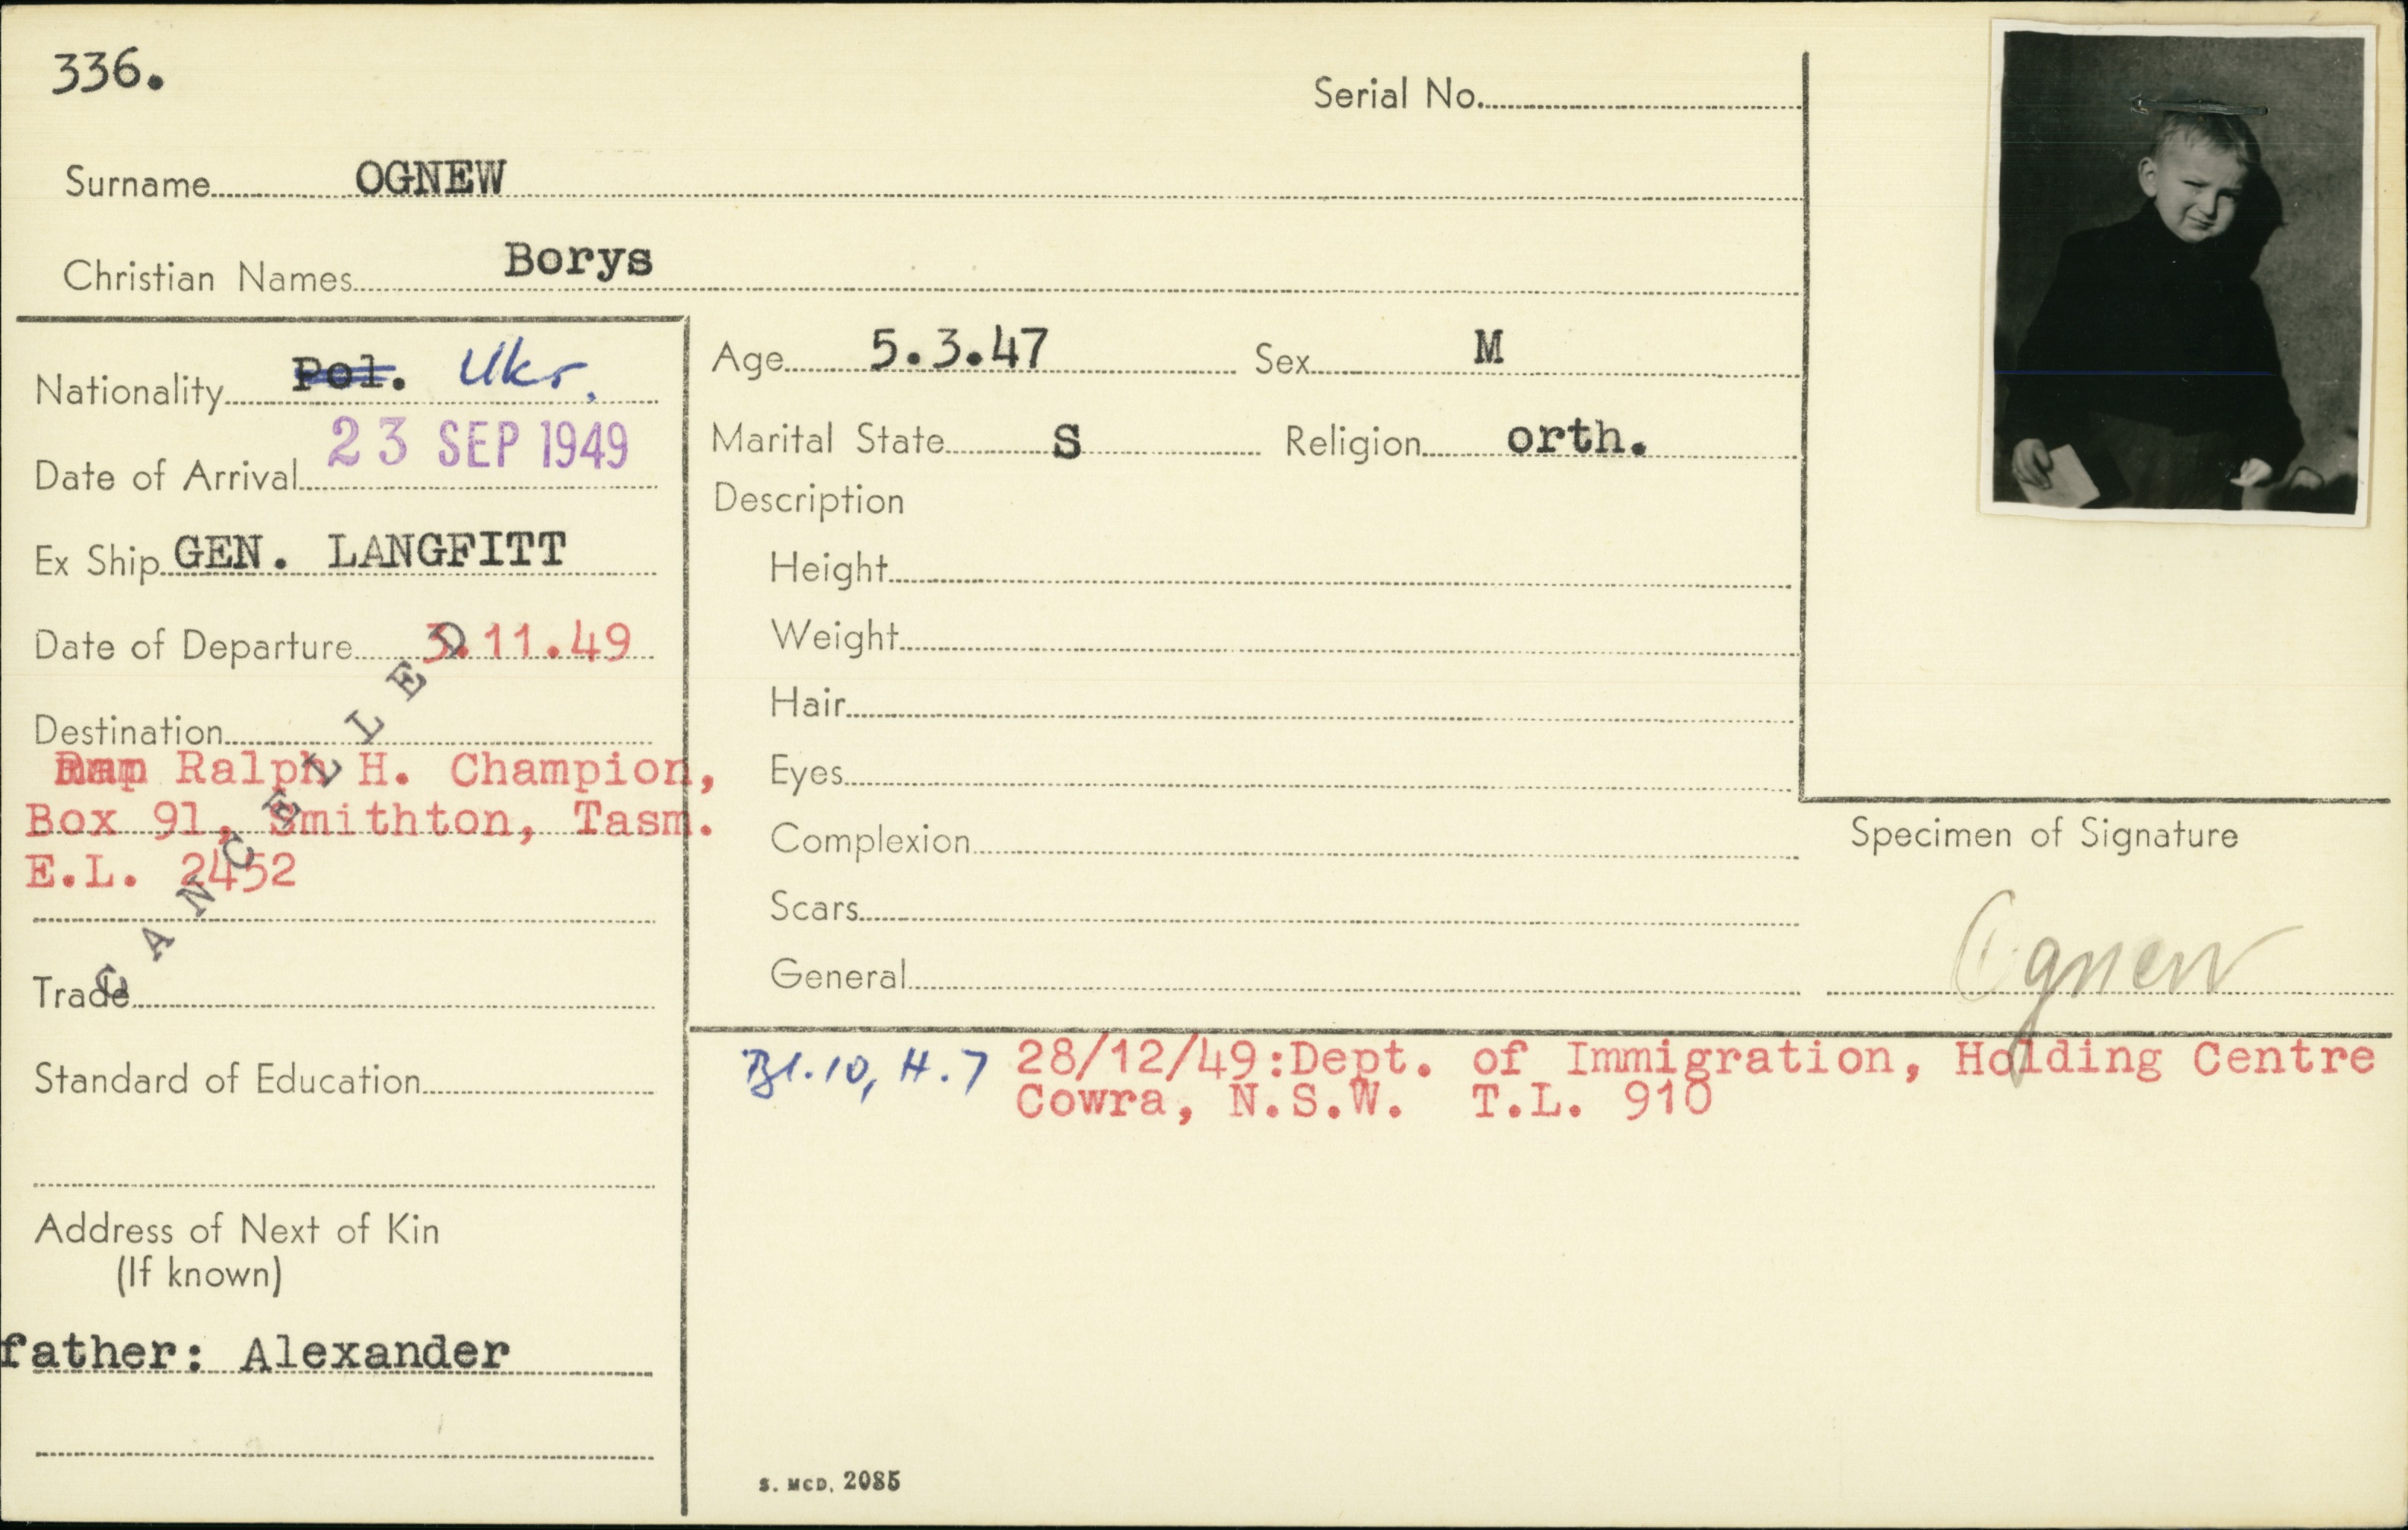 336.
Serial No.
Surname OGNEW
Christian Names Borys
Nationality Pol. Ukr.
Date of Arrival 23 SEP 1949
Ex Ship GEN. LANGFITT
Date of Departure 3.11.49
Destination
Ralph H. Champion,
Box 91, Smithton, Tasm.
E.L. 2452
CANCELLED
Trade
Standard of Education
Address of Next of Kin
(If known)
father: Alexander
Age 5.3.47 Sex M
Marital State S Religion orth.
Description
Height
Weight
Hair
Eyes
Complexion
Scars
General
Specimen of Signature
Ognew
Bl.10, H.7 28/12/49:Dept. of Immigration, Holding Centre
Cowra, N.S.W. T.L. 910
S. McD. 2085